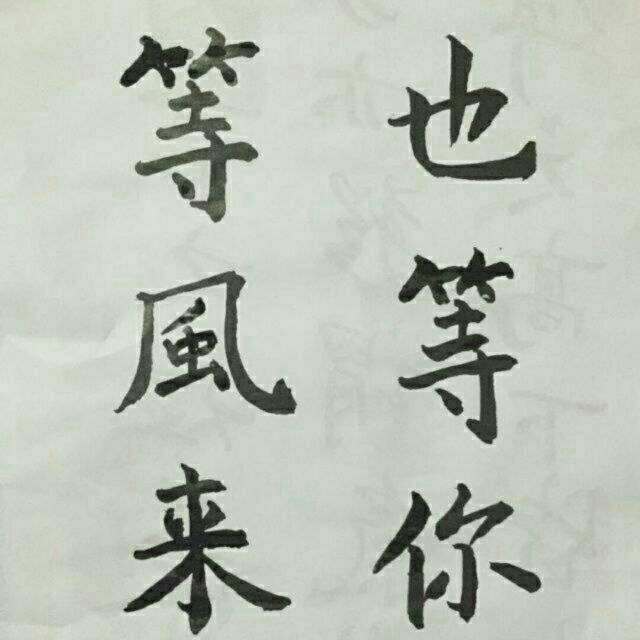 等風来
也等你